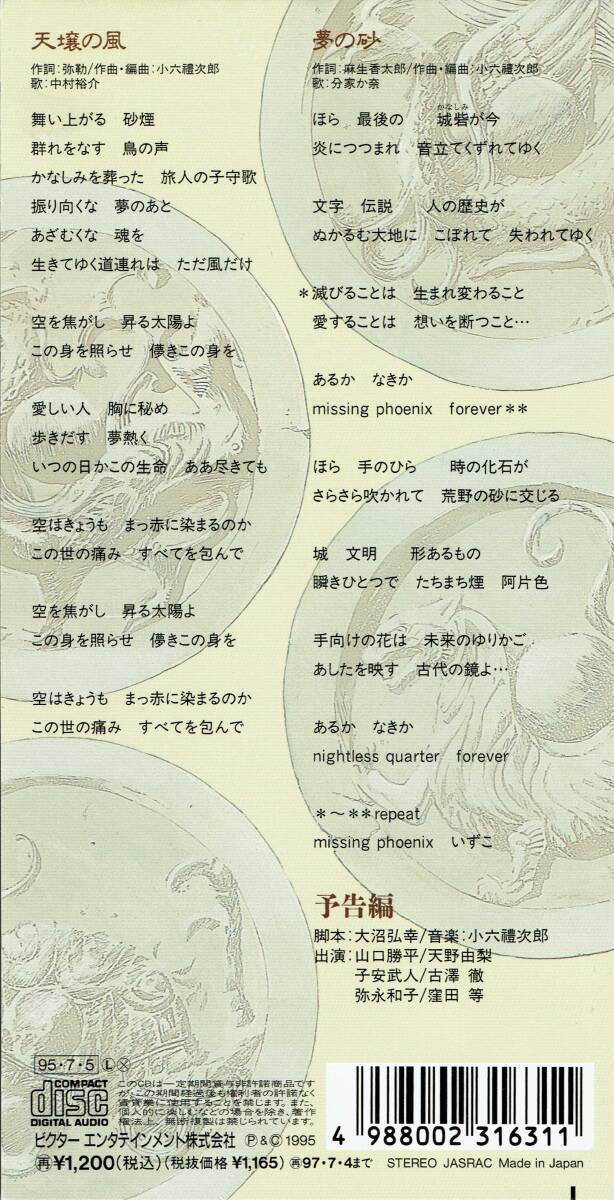 天壌の風
作詞:弥勒/作曲・編曲:小六禮次郎
歌:中村裕介
舞い上がる　砂煙
群れをなす　鳥の声
かなしみを葬った　旅人の子守歌
振り向くな　夢のあと
あざむくな　魂を
生きてゆく道連れは　ただ風だけ
空を焦がし　昇る太陽よ
この身を照らせ　儚きこの身を
愛しい人　胸に秘め
歩きだす　夢熱く
いつの日かこの生命　ああ尽きても
空はきょうも　まっ赤に染まるのか
この世の痛み　すべてを包んで
空を焦がし　昇る太陽よ
この身を照らせ　儚きこの身を
空はきょうも　まっ赤に染まるのか
この世の痛み　すべてを包んで
夢の砂
作詞:麻生香太郎/作曲・編曲:小六禮次郎
歌:分家か奈
かなしみ
ほら　最後の　城砦が今
炎につつまれ　音立てくずれてゆく
文字　伝説　人の歴史が
ぬかるむ大地に　こぼれて　失われてゆく
*滅びることは　生まれ変わること
愛することは　想いを断つこと…
あるか　なきか
missing phoenix　forever**
ほら　手のひら　時の化石が
さらさら吹かれて　荒野の砂に交じる
城　文明　形あるもの
瞬きひとつで　たちまち煙　阿片色
手向けの花は　未来のゆりかご
あしたを映す　古代の鏡よ…
あるか　なきか
nightless quarter　forever
*～**repeat
missing phoenix　いずこ
予告編
脚本:大沼弘幸/音楽:小六禮次郎
出演:山口勝平/天野由梨
子安武人/古澤 徹
弥永和子/窪田 等
95・7・5 Ⓛ Ⓧ
COMPACT
disc
DIGITAL AUDIO
このCDは一定期間貸与非許諾商品です
が、この期間経過後も権利者の許諾なく
賃貸業に使用することを禁じます。また、
個人的に楽しむなどの場合を除き、著作
権法上、無断複製は禁じられています。
ビクター エンタテインメント株式会社　Ⓟ&Ⓒ 1995
再¥1,200(税込)(税抜価格 ¥1,165) 再97・7・4まで　STEREO JASRAC Made in Japan
4 988002 316311